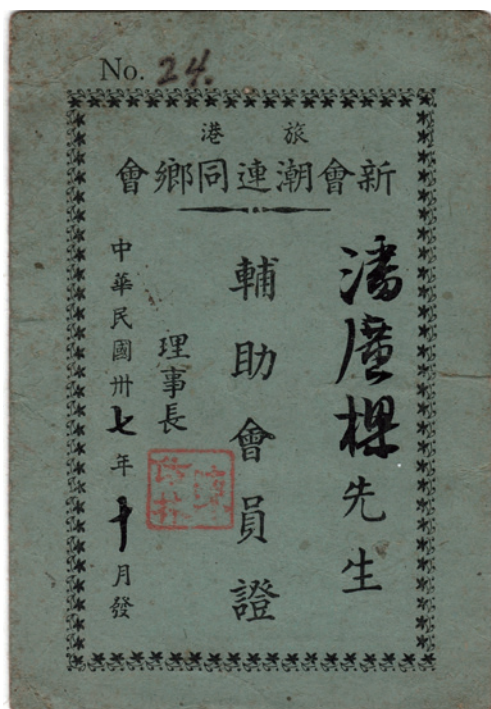 No. 24.
旅港
新會潮連同鄉會
潘廣棵先生
輔助會員證
理事長
中華民國卅七年十月發